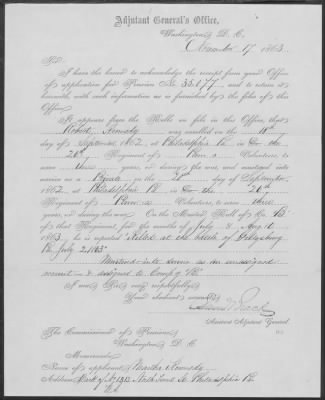 Adjutant General's Office,
Washington, D. C.
November 17, 1863.
Sir:
I have the honor to acknowledge the receipt from your Office
of application for Pension No. 33.177, and to return it
herewith, with such information as is furnished by the files of this
Office.
It appears from the Rolls on file in this Office, that
Robert Kennedy was enrolled on the
day of September, 1862, at Philadelphia Pa in Co.
26th Regiment of Penn a Volunteers, to
serve three years, or during the war, and mustered into
service as a Private on the 26th day of September
1862, at Philadelphia Pa in Co. the 26th
Regiment of Penn a Volunteers, to serve three
years, or during the war. On the Muster Roll of Co. B
of that Regiment for the months of July & Aug
1863, he is reported Killed at the battle of Gettysburg
Pa. July 2, 1863
Mustered into service as an unassigned
recruit & assigned to Comp'y B.
I am, Sir, very respectfully,
Your obedient servant,
Assistant Adjutant General.
The Commissioner of Pensions,
Washington, D. C.
Memoranda:
Name of applicant, Martha Kennedy
Address, North Philadelphia Pa.